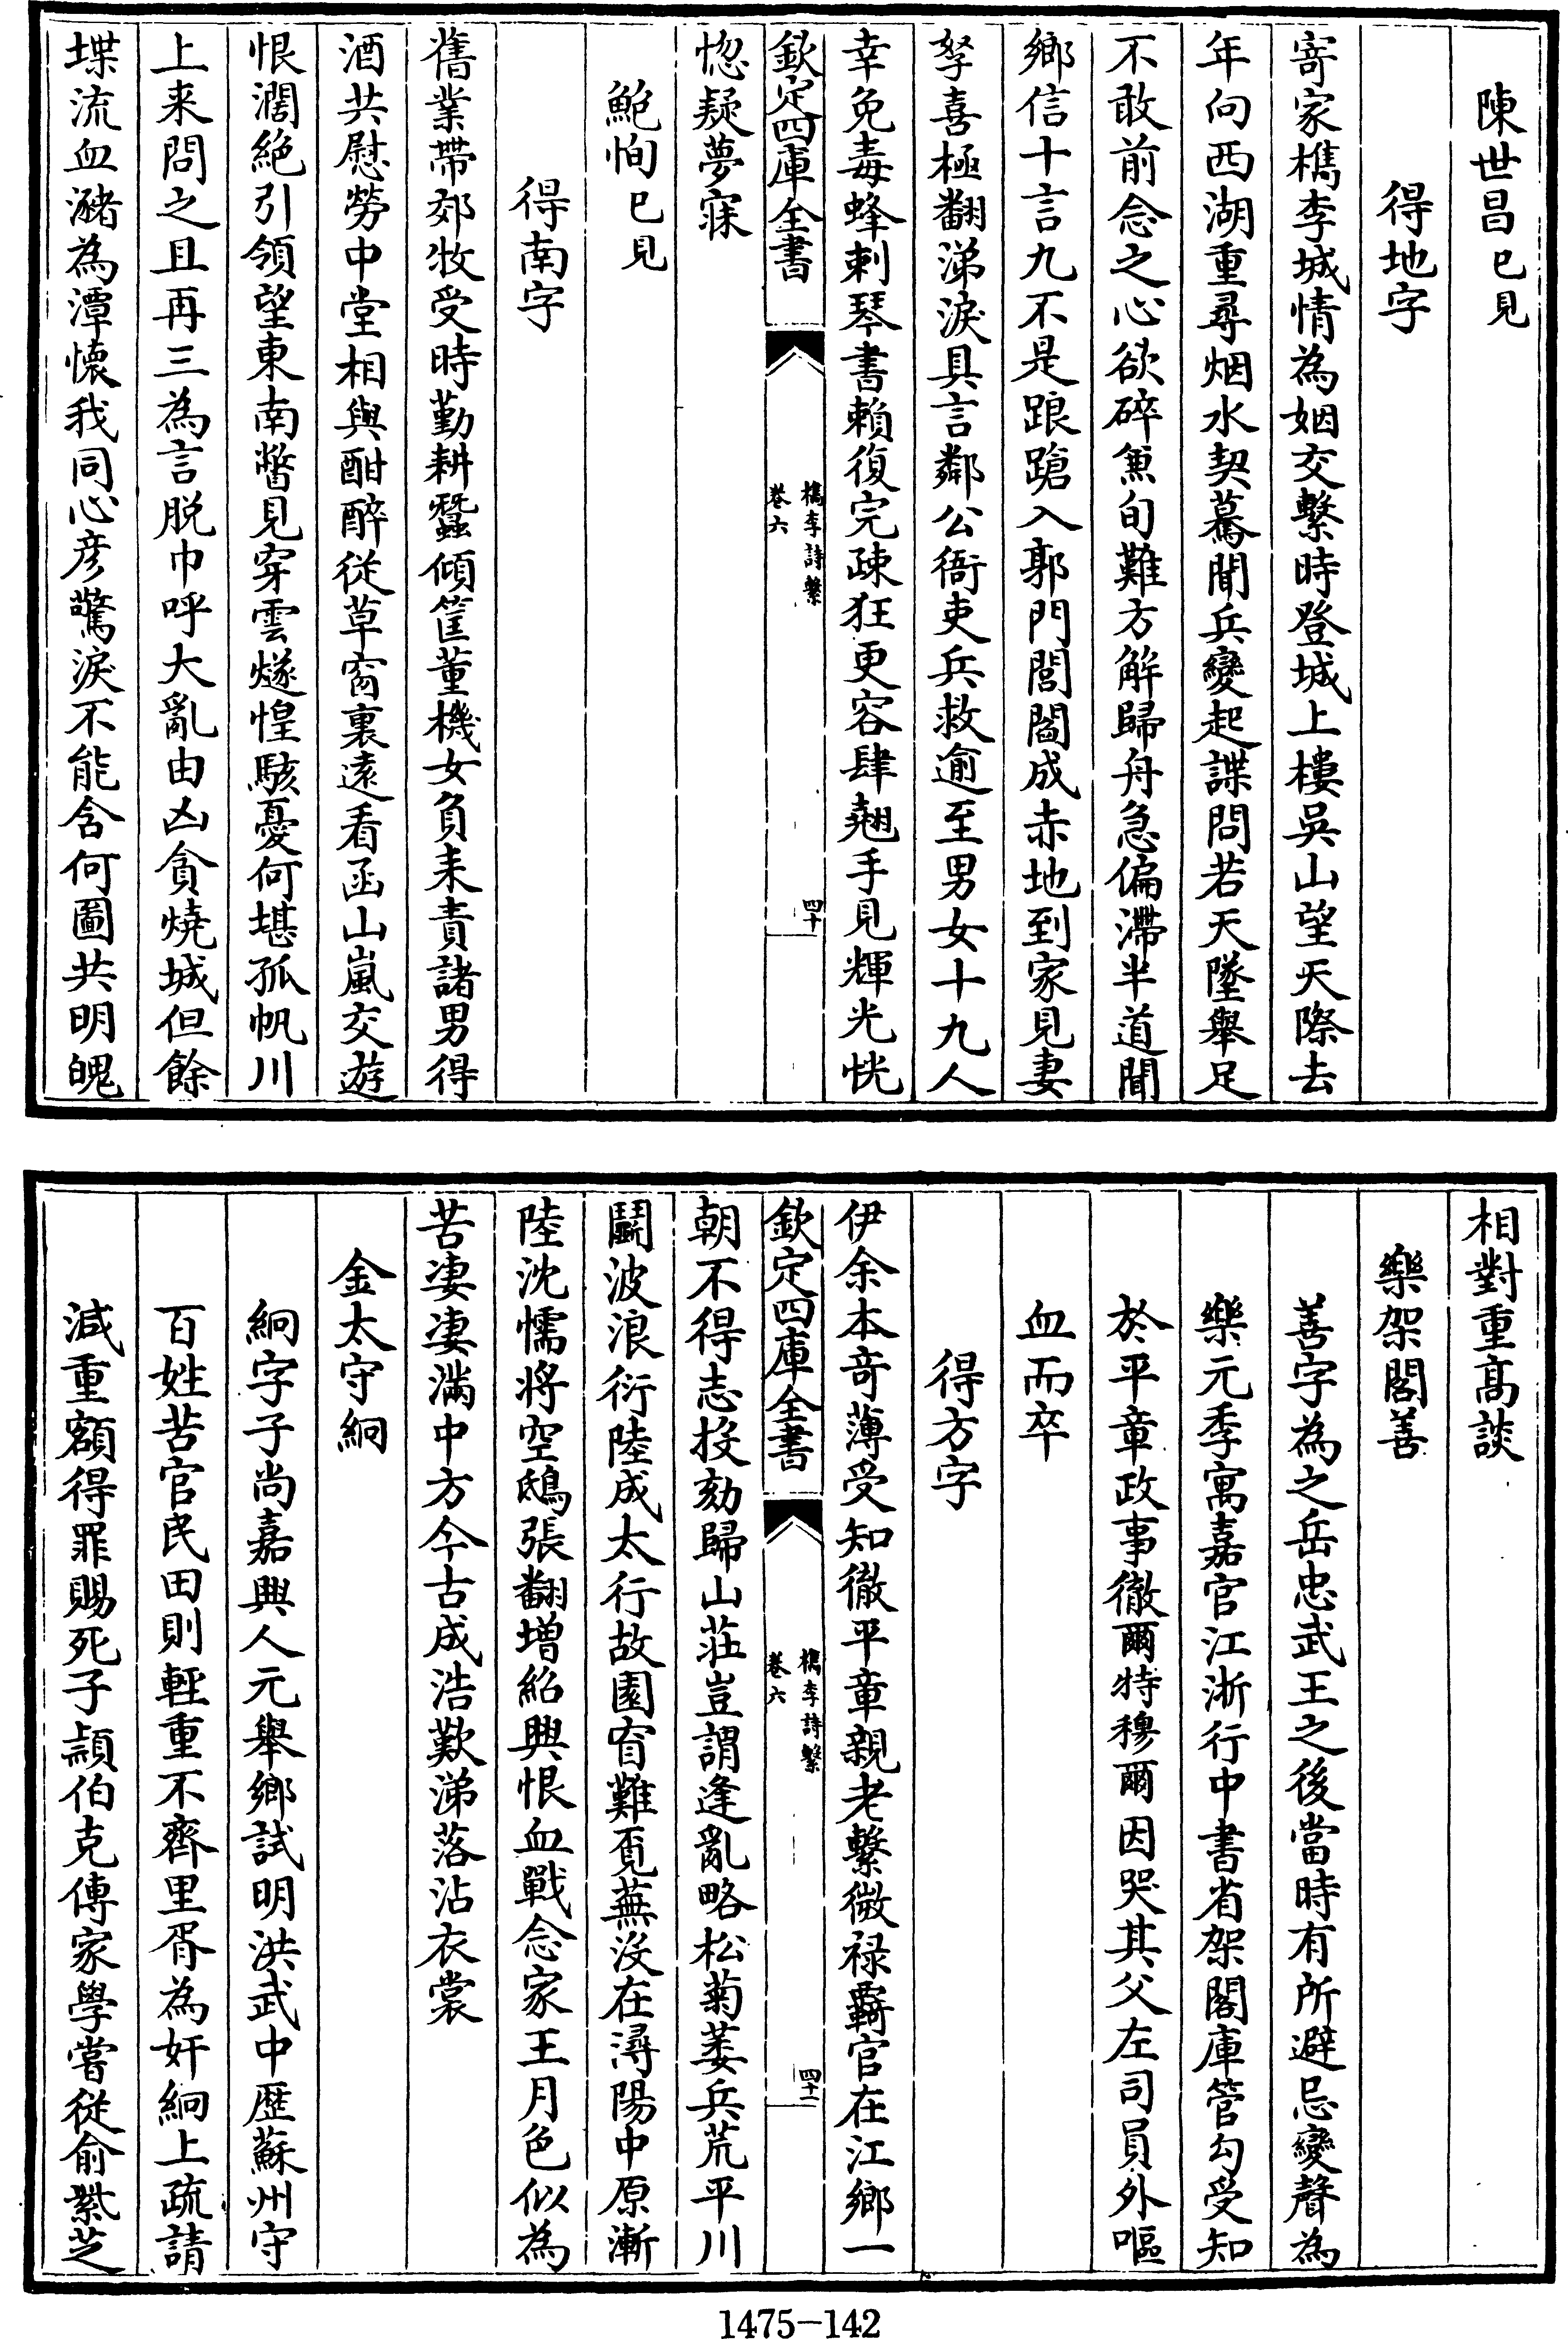 陳世昌已見
得地字
寄家檇李城情為姻交繫時登城上樓吳山望天際去
年向西湖重尋烟水契驀聞兵變起諜問若天墜舉足
不敢前念之心欲碎兼旬難方解歸舟急偏滯半道聞
鄉信十言九不是踉蹌入郭門閭閻成赤地到家見妻
孥喜極翻涕淚具言鄰公衙吏兵救逾至男女十九人
幸免毒蜂刺琴書賴復完疎狂更容肆翹手見輝光恍
欽定四庫全書
檇李詩繫
卷六
四十
惚疑夢寐
鮑恂已見
得南字
舊業帶郊牧受時勤耕蠶傾筐董機女負耒責諸男得
酒共慰勞中堂相與酣醉從草窗裏遠看函山嵐交遊
恨濶絶引領望東南瞥見穿雲燧惶駭憂何堪孤帆川
上来問之且再三為言脱巾呼大亂由凶貪燒城但餘
堞流血瀦為潭懷我同心彦驚淚不能含何圖共明魄
相對重高談
樂架閣善
善字為之岳忠武王之後當時有所避忌變聲為
樂元季寓嘉官江浙行中書省架閣庫管勾受知
於平章政事徹爾特穆爾因哭其父左司員外嘔
血而卒
得方字
伊余本奇薄受知徹平章親老繫微禄羇官在江鄉一
欽定四庫全書
檇李詩繫
卷六
四十一
朝不得志投劾歸山莊豈謂逢亂略松菊萎兵荒平川
鬭波浪衍陸成太行故園窅難覓蕪沒在潯陽中原漸
陸沈懦將空鴟張翻增紹興恨血戰念家王月色似為
苦凄凄滿中方今古成浩歎涕落沾衣裳
金太守絅
絅字子尚嘉興人元舉鄉試明洪武中歴蘇州守
百姓苦官民田則輕重不齊里胥為奸絅上疏請
減重額得罪賜死子顓伯克傳家學嘗從俞紫芝
1475-142